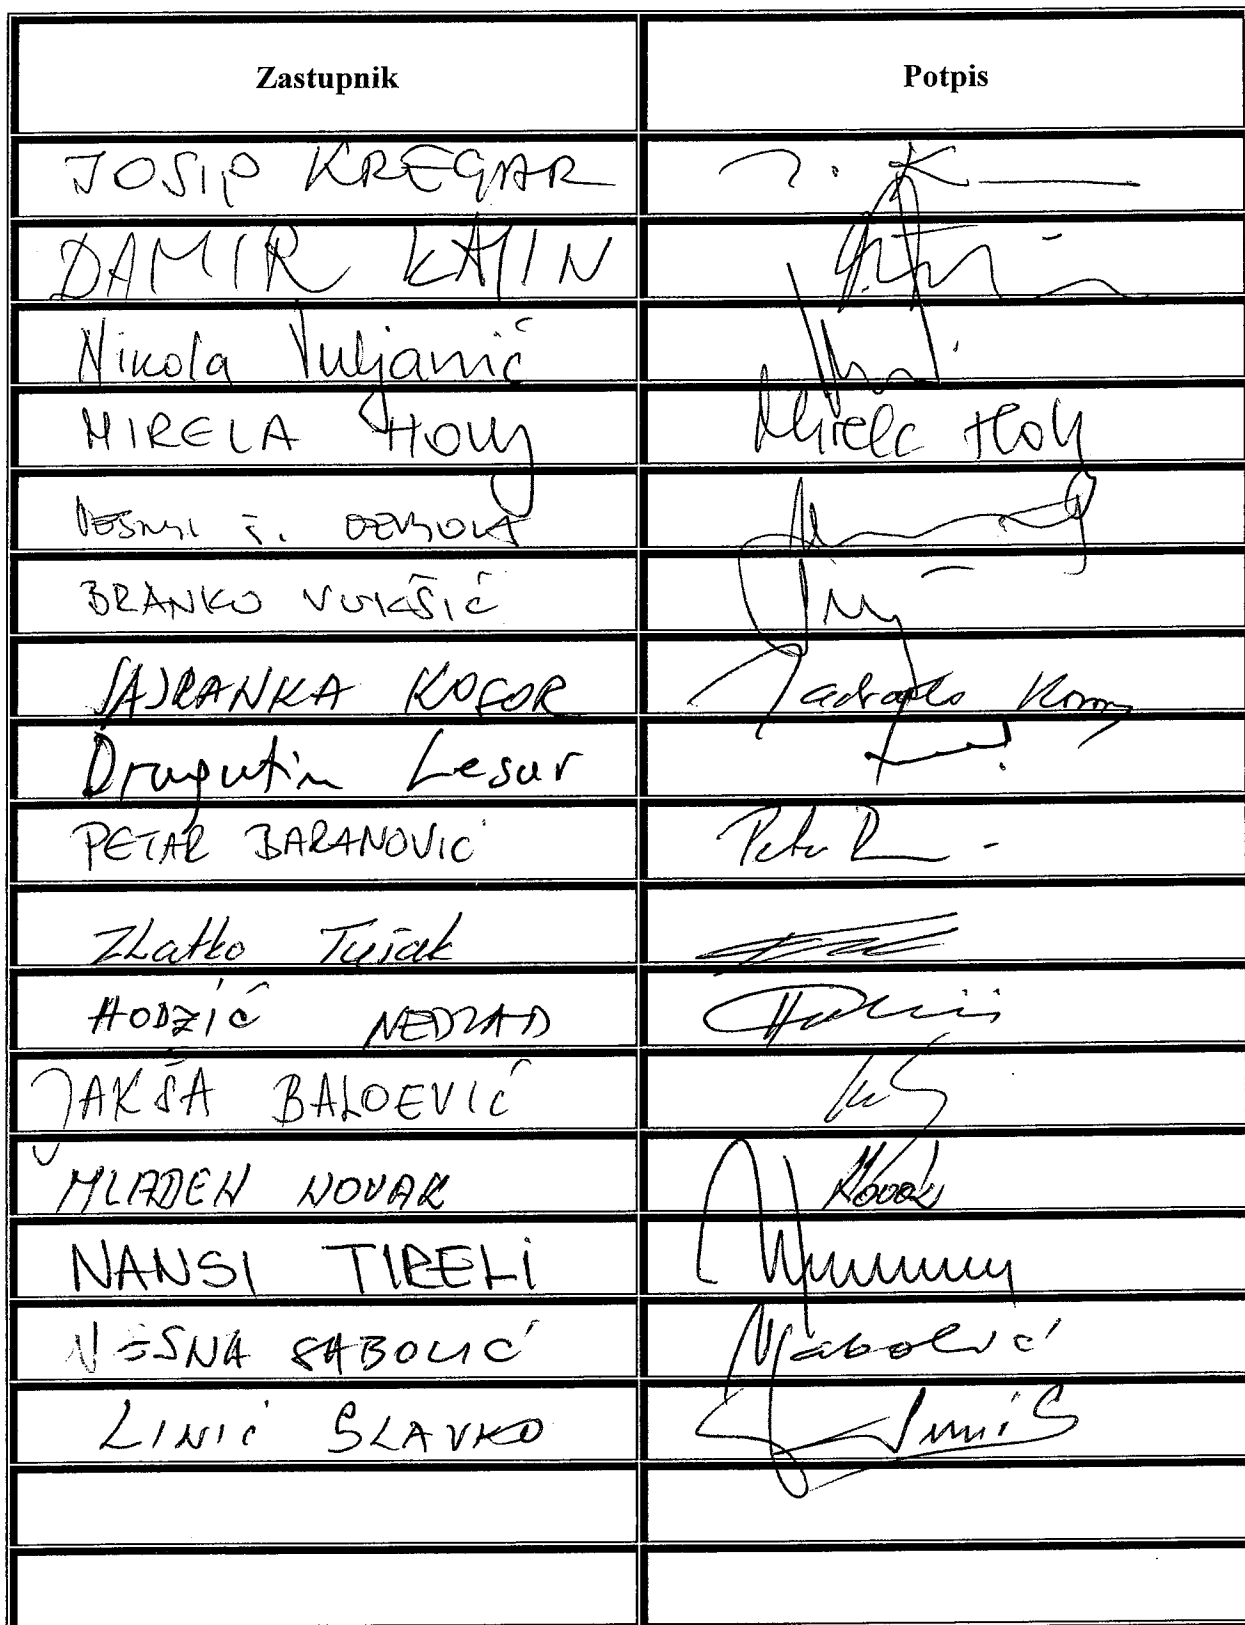 Zastupnik Potpis
JOSIP KREGAR J. K
DAMIR KAJIN
Nikola Vuljanić
MIRELA HOLY Mirela Holy
BRANKO VUKŠIĆ
JADRANKA KOSOR Jadranka Kosor
Dragutin Lesar
PETAR BARANOVIĆ Petar B
Zlatko Tušak
HODŽIĆ NEDŽAD
JAKŠA BALOEVIĆ
MLADEN NOVAK Novak
NANSI TIRELI
VESNA SABOLIĆ Sabolić
LINIĆ SLAVKO Linić S